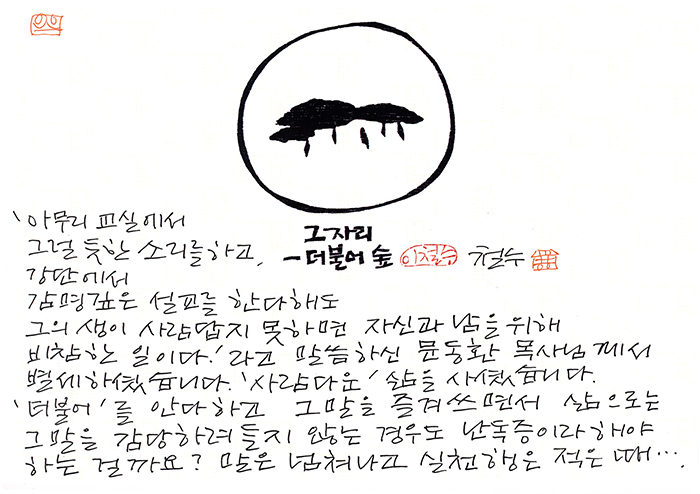 그 자리
- 더불어 숲
이철수
철수
'아무리 교실에서
그럴 듯한 소리를 하고,
강단에서
감명깊은 설교를 한다해도
그의 생이 사람답지 못하면 자신과 남을 위해
비참한 일이다.' 라고 말씀하신 문동환 목사님께서
별세하셨습니다. '사람다운' 삶을 사셨습니다.
'더불어'를 안다하고 그말을 즐겨쓰면서 삶으로는
그말을 감당하려 들지 않는 경우도 난독증이라 해야
하는 걸까요? 말은 넘쳐나고 실천행은 적은 때….